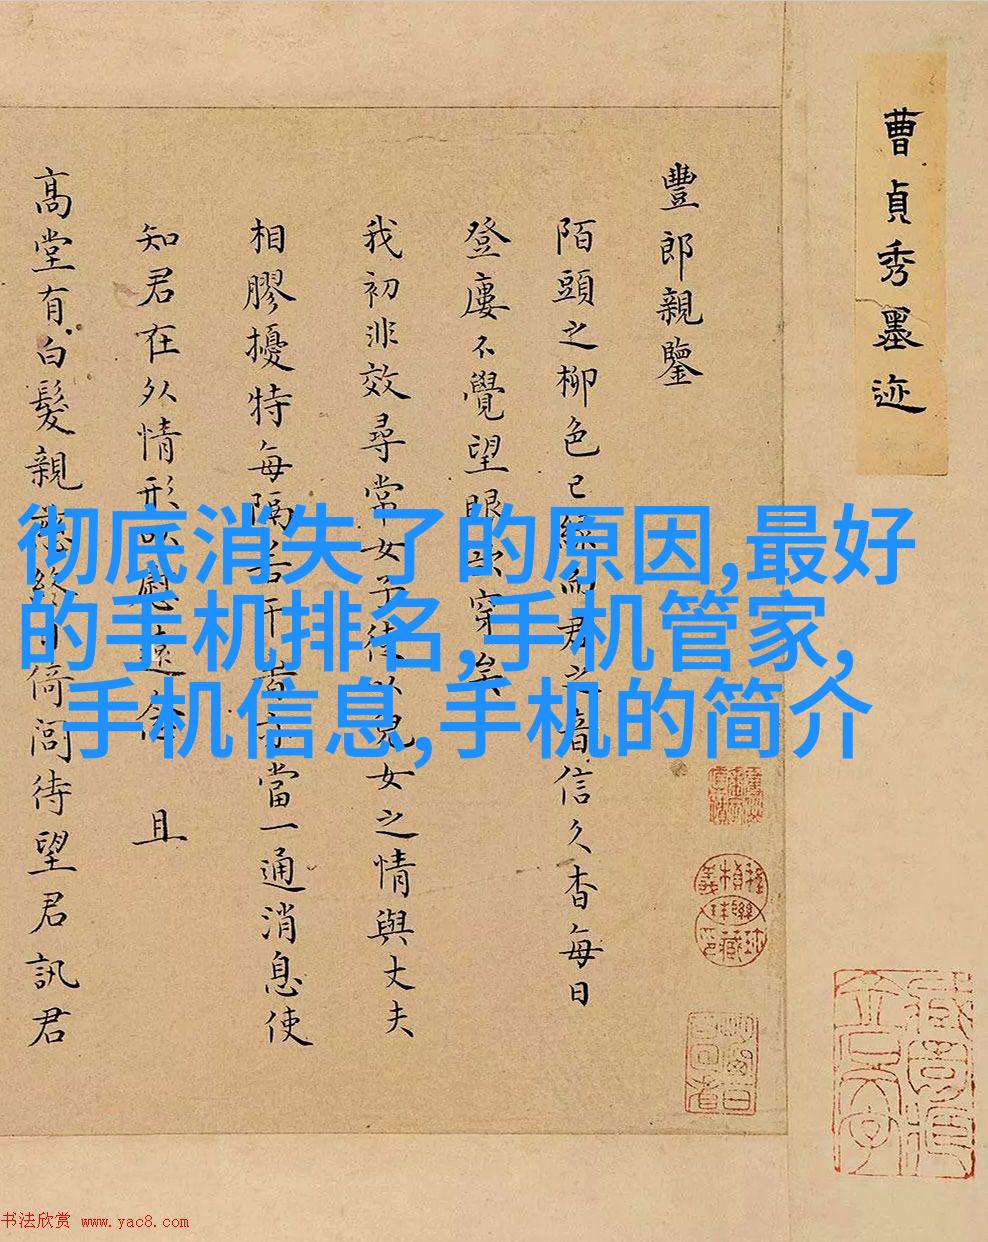 曹貞秀墨迹
豐郎親鑒
陌頭之柳色已綠而君之音信久杳每日
登廔不覺望眼欲穿矣
我初非效尋常女子徒以兒女之情與丈夫
相膠擾特每隔若干
當一通消息使
知君在外情形以慰遠念　且
高堂有白髮親
倚閭待望君訊君
彻底消失了的原因,最好
的手机排名,手机管家,
手机信息,手机的简介
书法欣赏 www.yac8.com